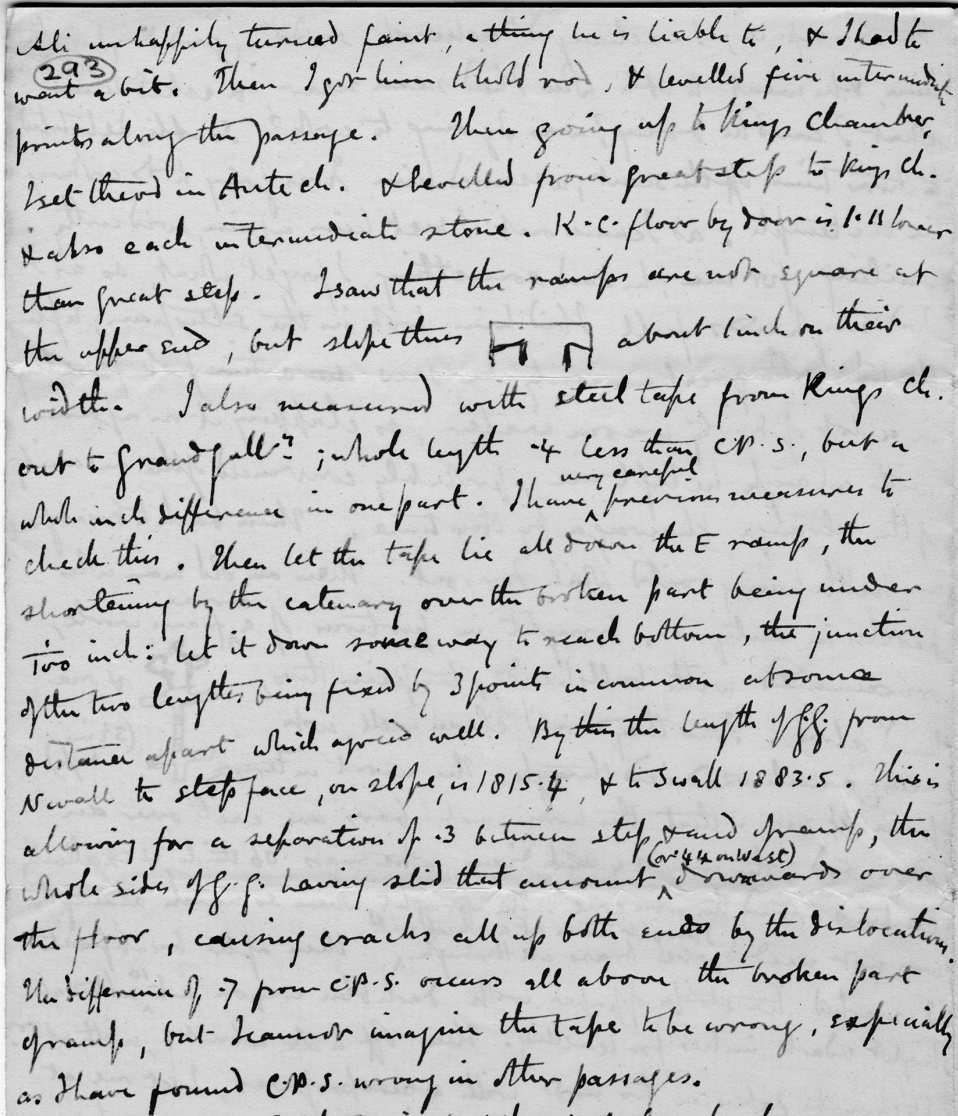 Ali unhappily turned faint, a thing he is liable to, & I had to
293
wait a bit. Then I got him to hold rod, & levelled five intermediate
points along the passage. Then going up to Kings Chamber,
I set the rod in Antech. & levelled from great step to Kings Ch.
& also each intermediate stone. K.C. floor by door is 1.11 lower
than great step. I saw that the ramps are not square at
the upper end, but slope thus about 1 inch on their
width. I also measured with steel tape from Kings Ch.
out to Grand Gall.y ; whole length .4 less than C.P.S., but a
whole inch difference in one part. I have very careful previous measures to
check this. Then let the tape lie all down the E ramp, the
shortening by the catenary over the broken part being under
1/100 inch: let it down some way to reach bottom, the junction
of the two lengths being fixed by 3 points in common at some
distance apart which agreed well. By this the length of G.G. from
N wall to step face, on slope, is 1815.4, & to S wall 1883.5. This is
allowing for a separation of .3 between step & end of ramp, the
whole sides of G.G. having slid that amount (or .44 on West) downwards over
the floor, causing cracks all up both ends by the dislocation.
The difference of .7 from C.P.S. occurs all above the broken part
of ramp, but I cannot imagine the tape to be wrong, especially
as I have found C.P.S. wrong in other passages.